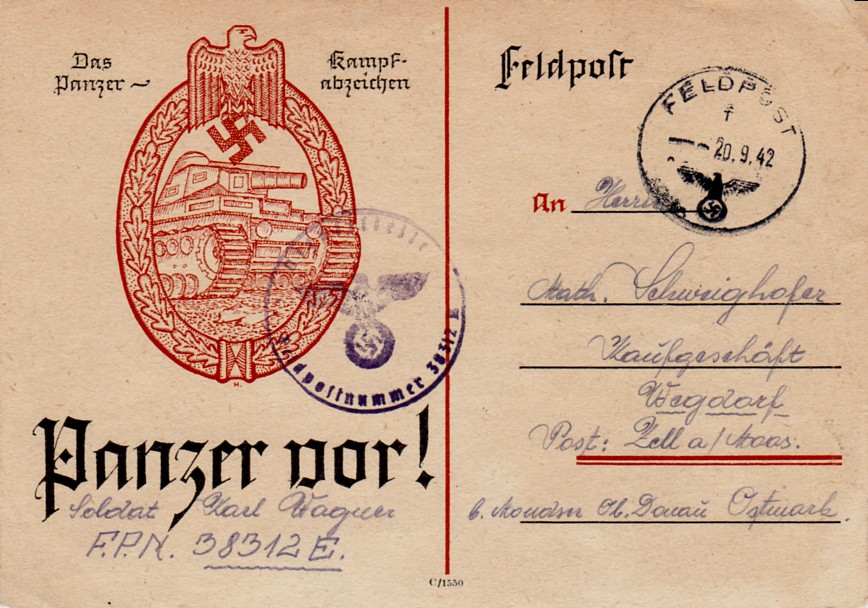 Das
Panzer ~
Kampf-
abzeichen
H.
Panzer vor!
Soldat Karl Wagner
F.P.N. 38312 E.
Feldpost
FELDPOST
f
20.9.42
Feldpostnummer 38312 E
An Herrn
Math. Schweighofer
Kaufgeschäft
Wegdorf
Post: Zell a/Moos.
b. Mondsee Ob. Donau Ostmark.
C/1550